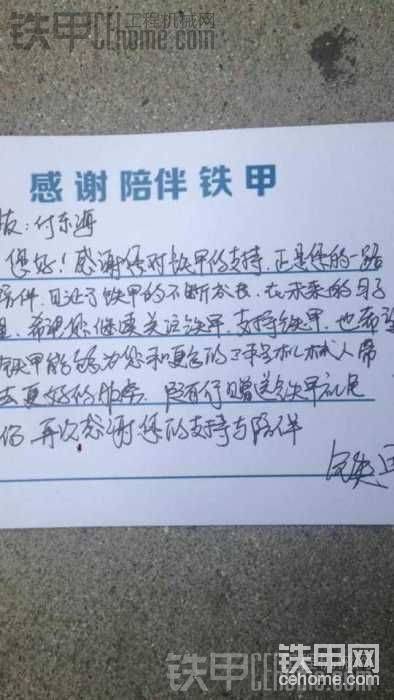 铁甲 工程机械网
CEhome.com
感谢陪伴铁甲
版：付东海
您好！感谢您对铁甲的支持，正是您的一路
陪伴，见证了铁甲的不断成长，在未来的日子
里，希望您继续关注铁甲，支持铁甲，也希望
铁甲能够为您和更多的工程机械人带
去更好的服务。随有行赠送铁甲礼包
一份 再次感谢您的支持与陪伴
铁甲网
cehome.com
铁甲CEhome.com